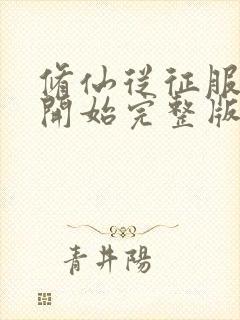 修仙從征服
開始完整版
青井陽